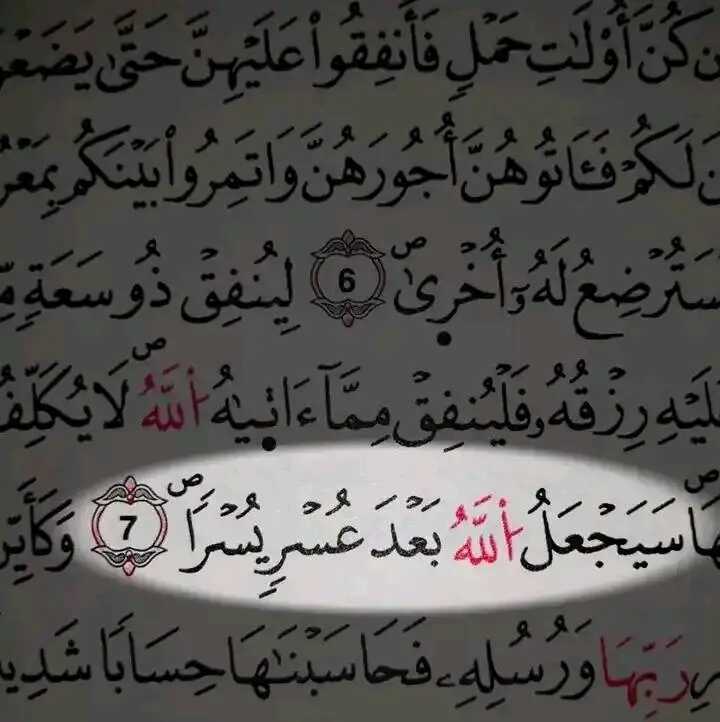 كُنَّ أُوْلَٰتِ حَمْلٍ فَأَنفِقُواْ عَلَيْهِنَّ حَتَّىٰ يَضَعْ
لَكُمْ فَـَٔاتُوهُنَّ أُجُورَهُنَّ وَاتَمِرُواْ بَيْنَكُم بِمَعْر
سَتُرْضِعُ لَهُۥٓ أُخْر۪ىٰۖ 6 لِيُنفِقْ ذُو سَعَةٍ مِّ
عَلَيْهِ رِزْقُهُۥ فَلْيُنفِقْ مِمَّآ ءَات۪يٰهُ اُ۬للَّهُۖ لَا يُكَلِّفُ
هَاۖ سَيَجْعَلُ اُ۬للَّهُ بَعْدَ عُسْرٍ يُسْراٗۖ 7 وَكَأَيِّن
رَبِّهَا وَرُسُلِهِۦ فَحَاسَبْنَٰهَا حِسَاباٗ شَدِيد